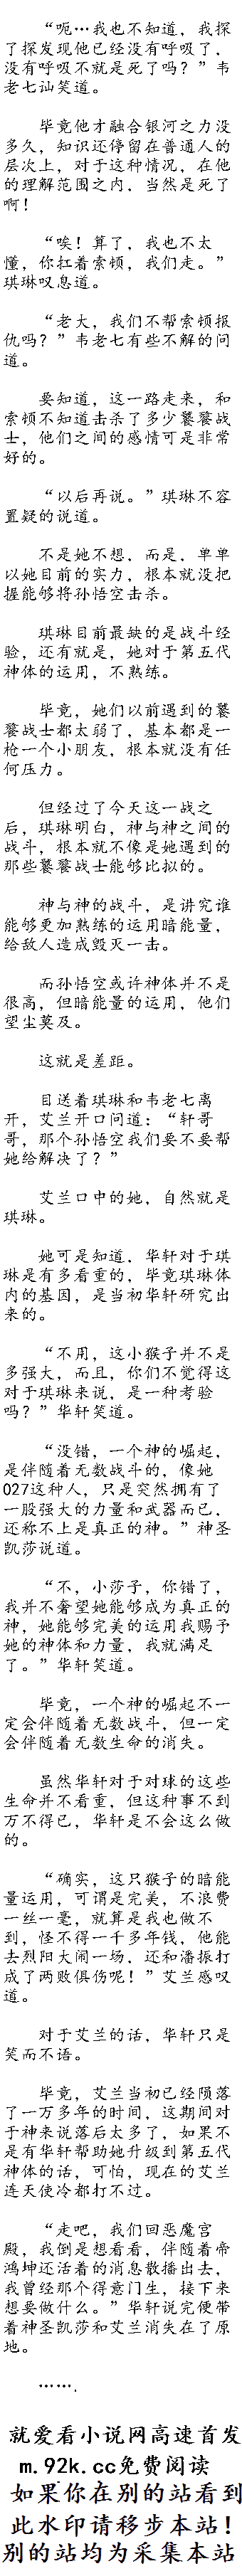 “呃…我也不知道，我探
了探发现他已经没有呼吸了，
没有呼吸不就是死了吗？”韦
老七讪笑道。
毕竟他才融合银河之力没
多久，知识还停留在普通人的
层次上，对于这种情况，在他
的理解范围之内，当然是死了
啊！
“唉！算了，我也不太
懂，你扛着索顿，我们走。”
琪琳叹息道。
“老大，我们不帮索顿报
仇吗？”韦老七有些不解的问
道。
要知道，这一路走来，和
索顿不知道击杀了多少饕餮战
士，他们之间的感情可是非常
好的。
“以后再说。”琪琳不容
置疑的说道。
不是她不想，而是，单单
以她目前的实力，根本就没把
握能够将孙悟空击杀。
琪琳目前最缺的是战斗经
验，还有就是，她对于第五代
神体的运用，不熟练。
毕竟，她们以前遇到的饕
餮战士都太弱了，基本都是一
枪一个小朋友，根本就没有任
何压力。
但经过了今天这一战之
后，琪琳明白，神与神之间的
战斗，根本就不像是她遇到的
那些饕餮战士能够比拟的。
神与神的战斗，是讲究谁
能够更加熟练的运用暗能量，
给敌人造成毁灭一击。
而孙悟空或许神体并不是
很高，但暗能量的运用，他们
望尘莫及。
这就是差距。
目送着琪琳和韦老七离
开，艾兰开口问道：“轩哥
哥，那个孙悟空我们要不要帮
她给解决了？”
艾兰口中的她，自然就是
琪琳。
她可是知道，华轩对于琪
琳是有多看重的，毕竟琪琳体
内的基因，是当初华轩研究出
来的。
“不用，这小猴子并不是
多强大，而且，你们不觉得这
对于琪琳来说，是一种考验
吗？”华轩笑道。
“没错，一个神的崛起，
是伴随着无数战斗的，像她
027这种人，只是突然拥有了
一股强大的力量和武器而已，
还称不上是真正的神。”神圣
凯莎说道。
“不，小莎子，你错了，
我并不奢望她能够成为真正的
神，她能够完美的运用我赐予
她的神体和力量，我就满足
了。”华轩笑道。
毕竟，一个神的崛起不一
定会伴随着无数战斗，但一定
会伴随着无数生命的消失。
虽然华轩对于对球的这些
生命并不看重，但这种事不到
万不得已，华轩是不会这么做
的。
“确实，这只猴子的暗能
量运用，可谓是完美，不浪费
一丝一毫，就算是我也做不
到，怪不得一千多年钱，他能
去烈阳大闹一场，还和潘振打
成了两败俱伤呢！”艾兰感叹
道。
对于艾兰的话，华轩只是
笑而不语。
毕竟，艾兰当初已经陨落
了一万多年的时间，这期间对
于神来说落后太多了，如果不
是有华轩帮助她升级到第五代
神体的话，可怕，现在的艾兰
连天使冷都打不过。
“走吧，我们回恶魔宫
殿，我倒是想看看，伴随着帝
鸿坤还活着的消息散播出去，
我曾经那个得意门生，接下来
想要做什么。”华轩说完便带
着神圣凯莎和艾兰消失在了原
地。
…….
就爱看小说网高速首发
m.92k.cc免费阅读
如果你在别的站看到
此水印请移步本站！
别的站均为采集本站